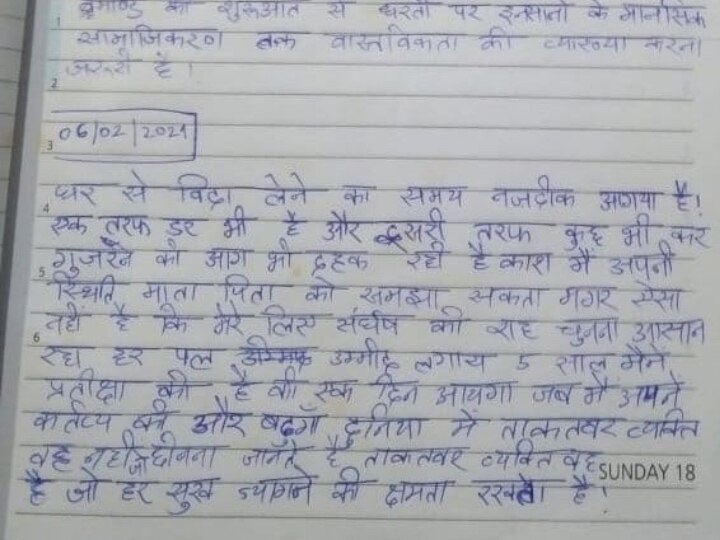 ब्रमाण्ड की शुरुआत से धरती पर इन्सानो के मानसिक
1 सामाजिकरण तक वास्तविकता की व्याख्या करना
जरूरी है।
2
06/02/2021
3
घर से विदा लेने का समय नजदीक आगया है।
4
एक तरफ डर भी है और दुसरी तरफ कुछ भी कर
गुजरने की आग भी दहक रही है काश मैं अपनी
5
स्थिति माता पिता को समझा सकता मगर ऐसा
नहीं है कि मेरे लिए संर्घष की राह चुनना आसान
6
रहा हर पल उम्मीद लगाय 5 साल मैंने
प्रतीक्षा की है की एक दिन आयगा जब मैं अपने
कर्तव्य की और बढुगाँ दुनिया में ताकतवर व्यक्ति
वह नही जो छीनना जानते है ताकतवर व्यक्ति वह
SUNDAY 18
है जो हर सुख त्यागने की क्षमता रखता है।